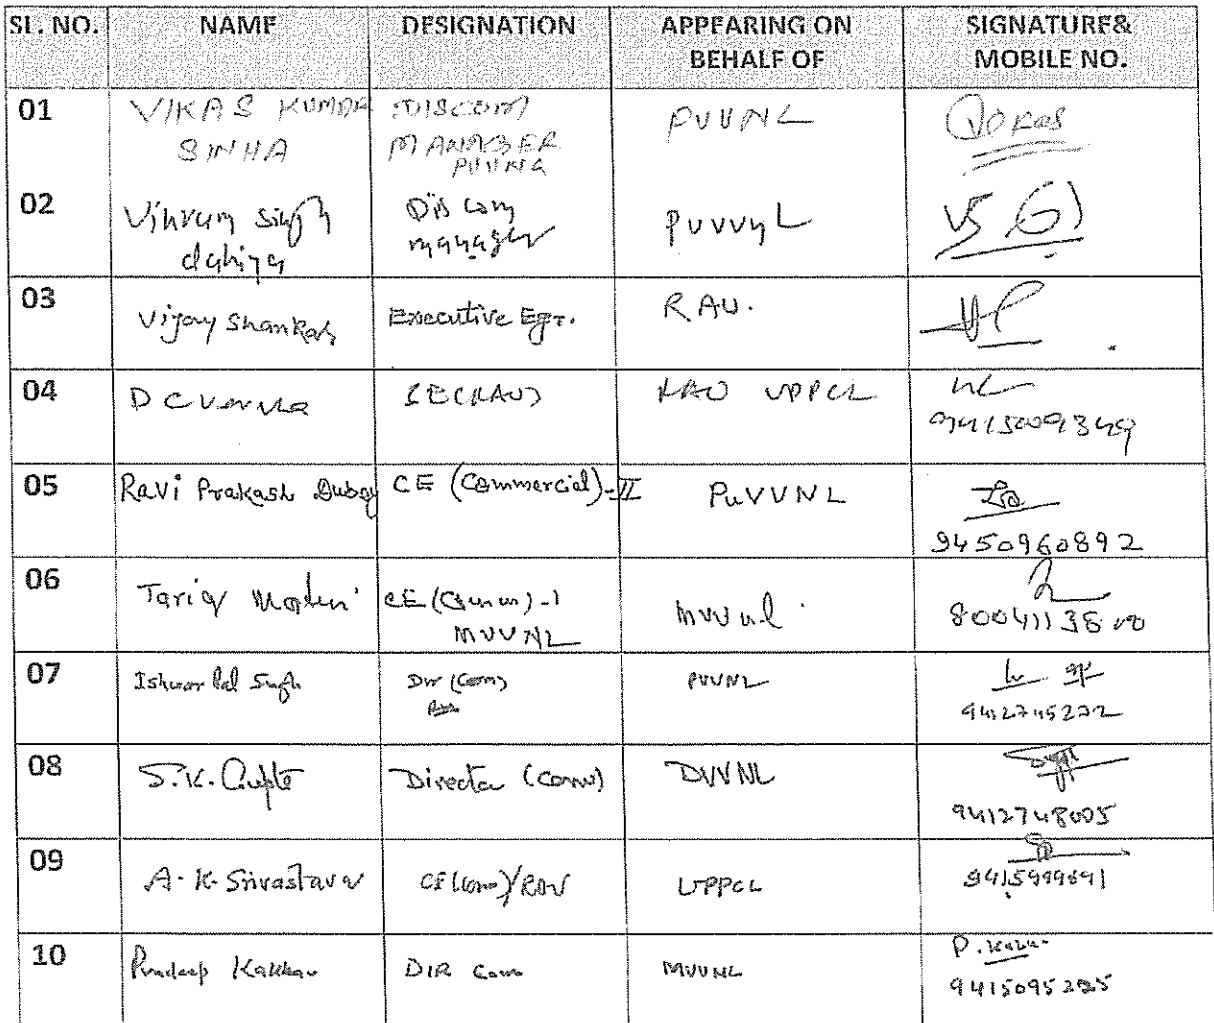 SL. NO. NAME DESIGNATION APPEARING ON BEHALF OF SIGNATURE& MOBILE NO.
01 VIKAS KUMAR DISCOM PUVNL Vikas
SINHA MANAGER
02 Vikrum Singh Discom PUVVNL
dahiya manager
03 Vijay Shankar Executive Egr. RAU.
04 D C Verma SE(RAU) RAU UPPCL
9415009349
05 Ravi Prakash Dubey CE (Commercial)-II PuVVNL
9450960892
06 Tariq CE (Comm)-1 MVVNL
MVVNL
07 Ishwar Pal Singh Dir (Com) PVVNL
9412745272
08 S.K. Gupta Director (Comm) DVVNL
9412748005
09 A.K. Srivastava CE(Com)/RAU UPPCL
10 Pradeep Kakkar DIR Com MVVNL
9415095225